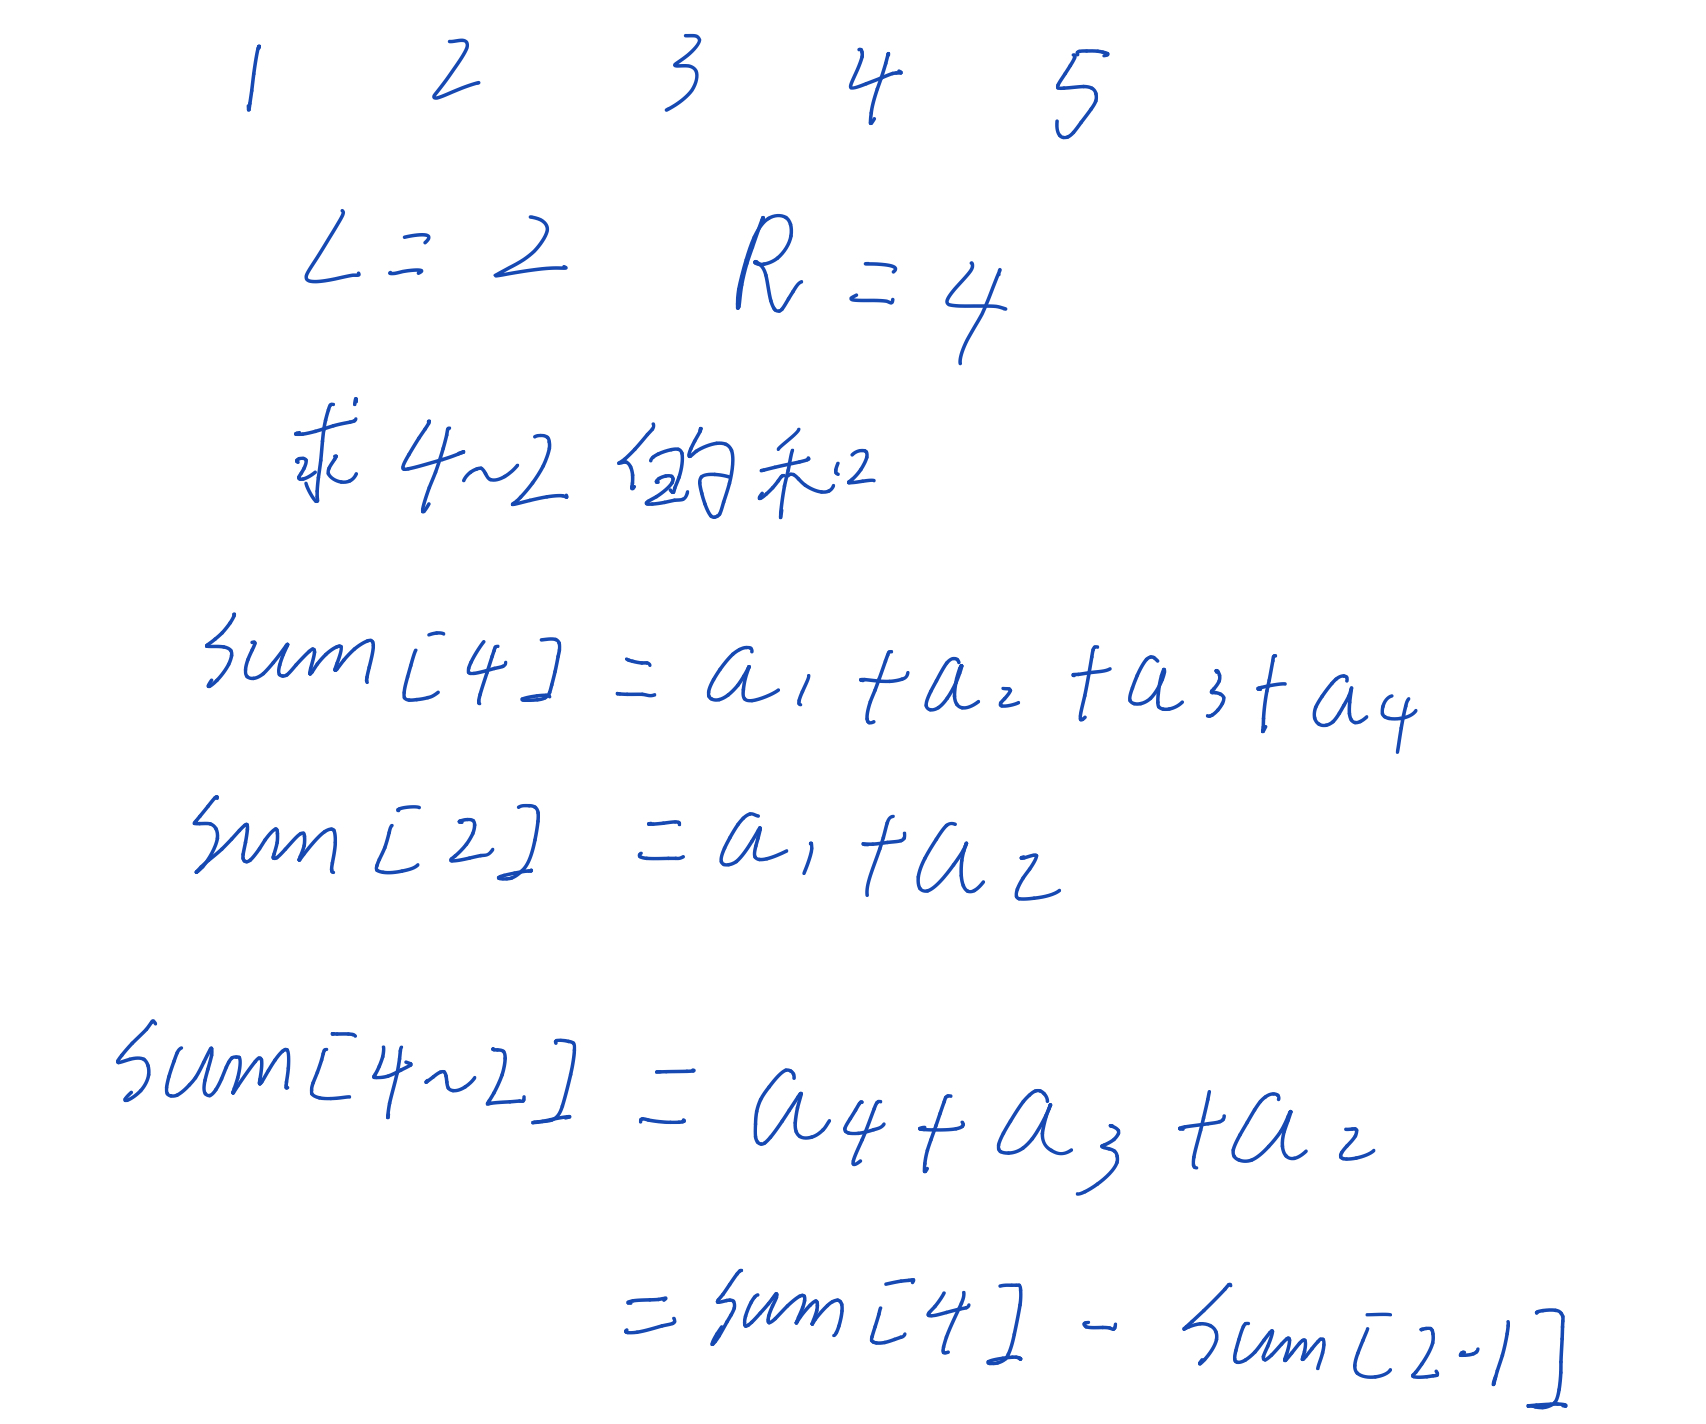 1 2 3 4 5
L = 2 R = 4
求 4~2 的和
sum[4] = a₁ + a₂ + a₃ + a₄
sum[2] = a₁ + a₂
sum[4~2] = a₄ + a₃ + a₂
= sum[4] - sum[2-1]